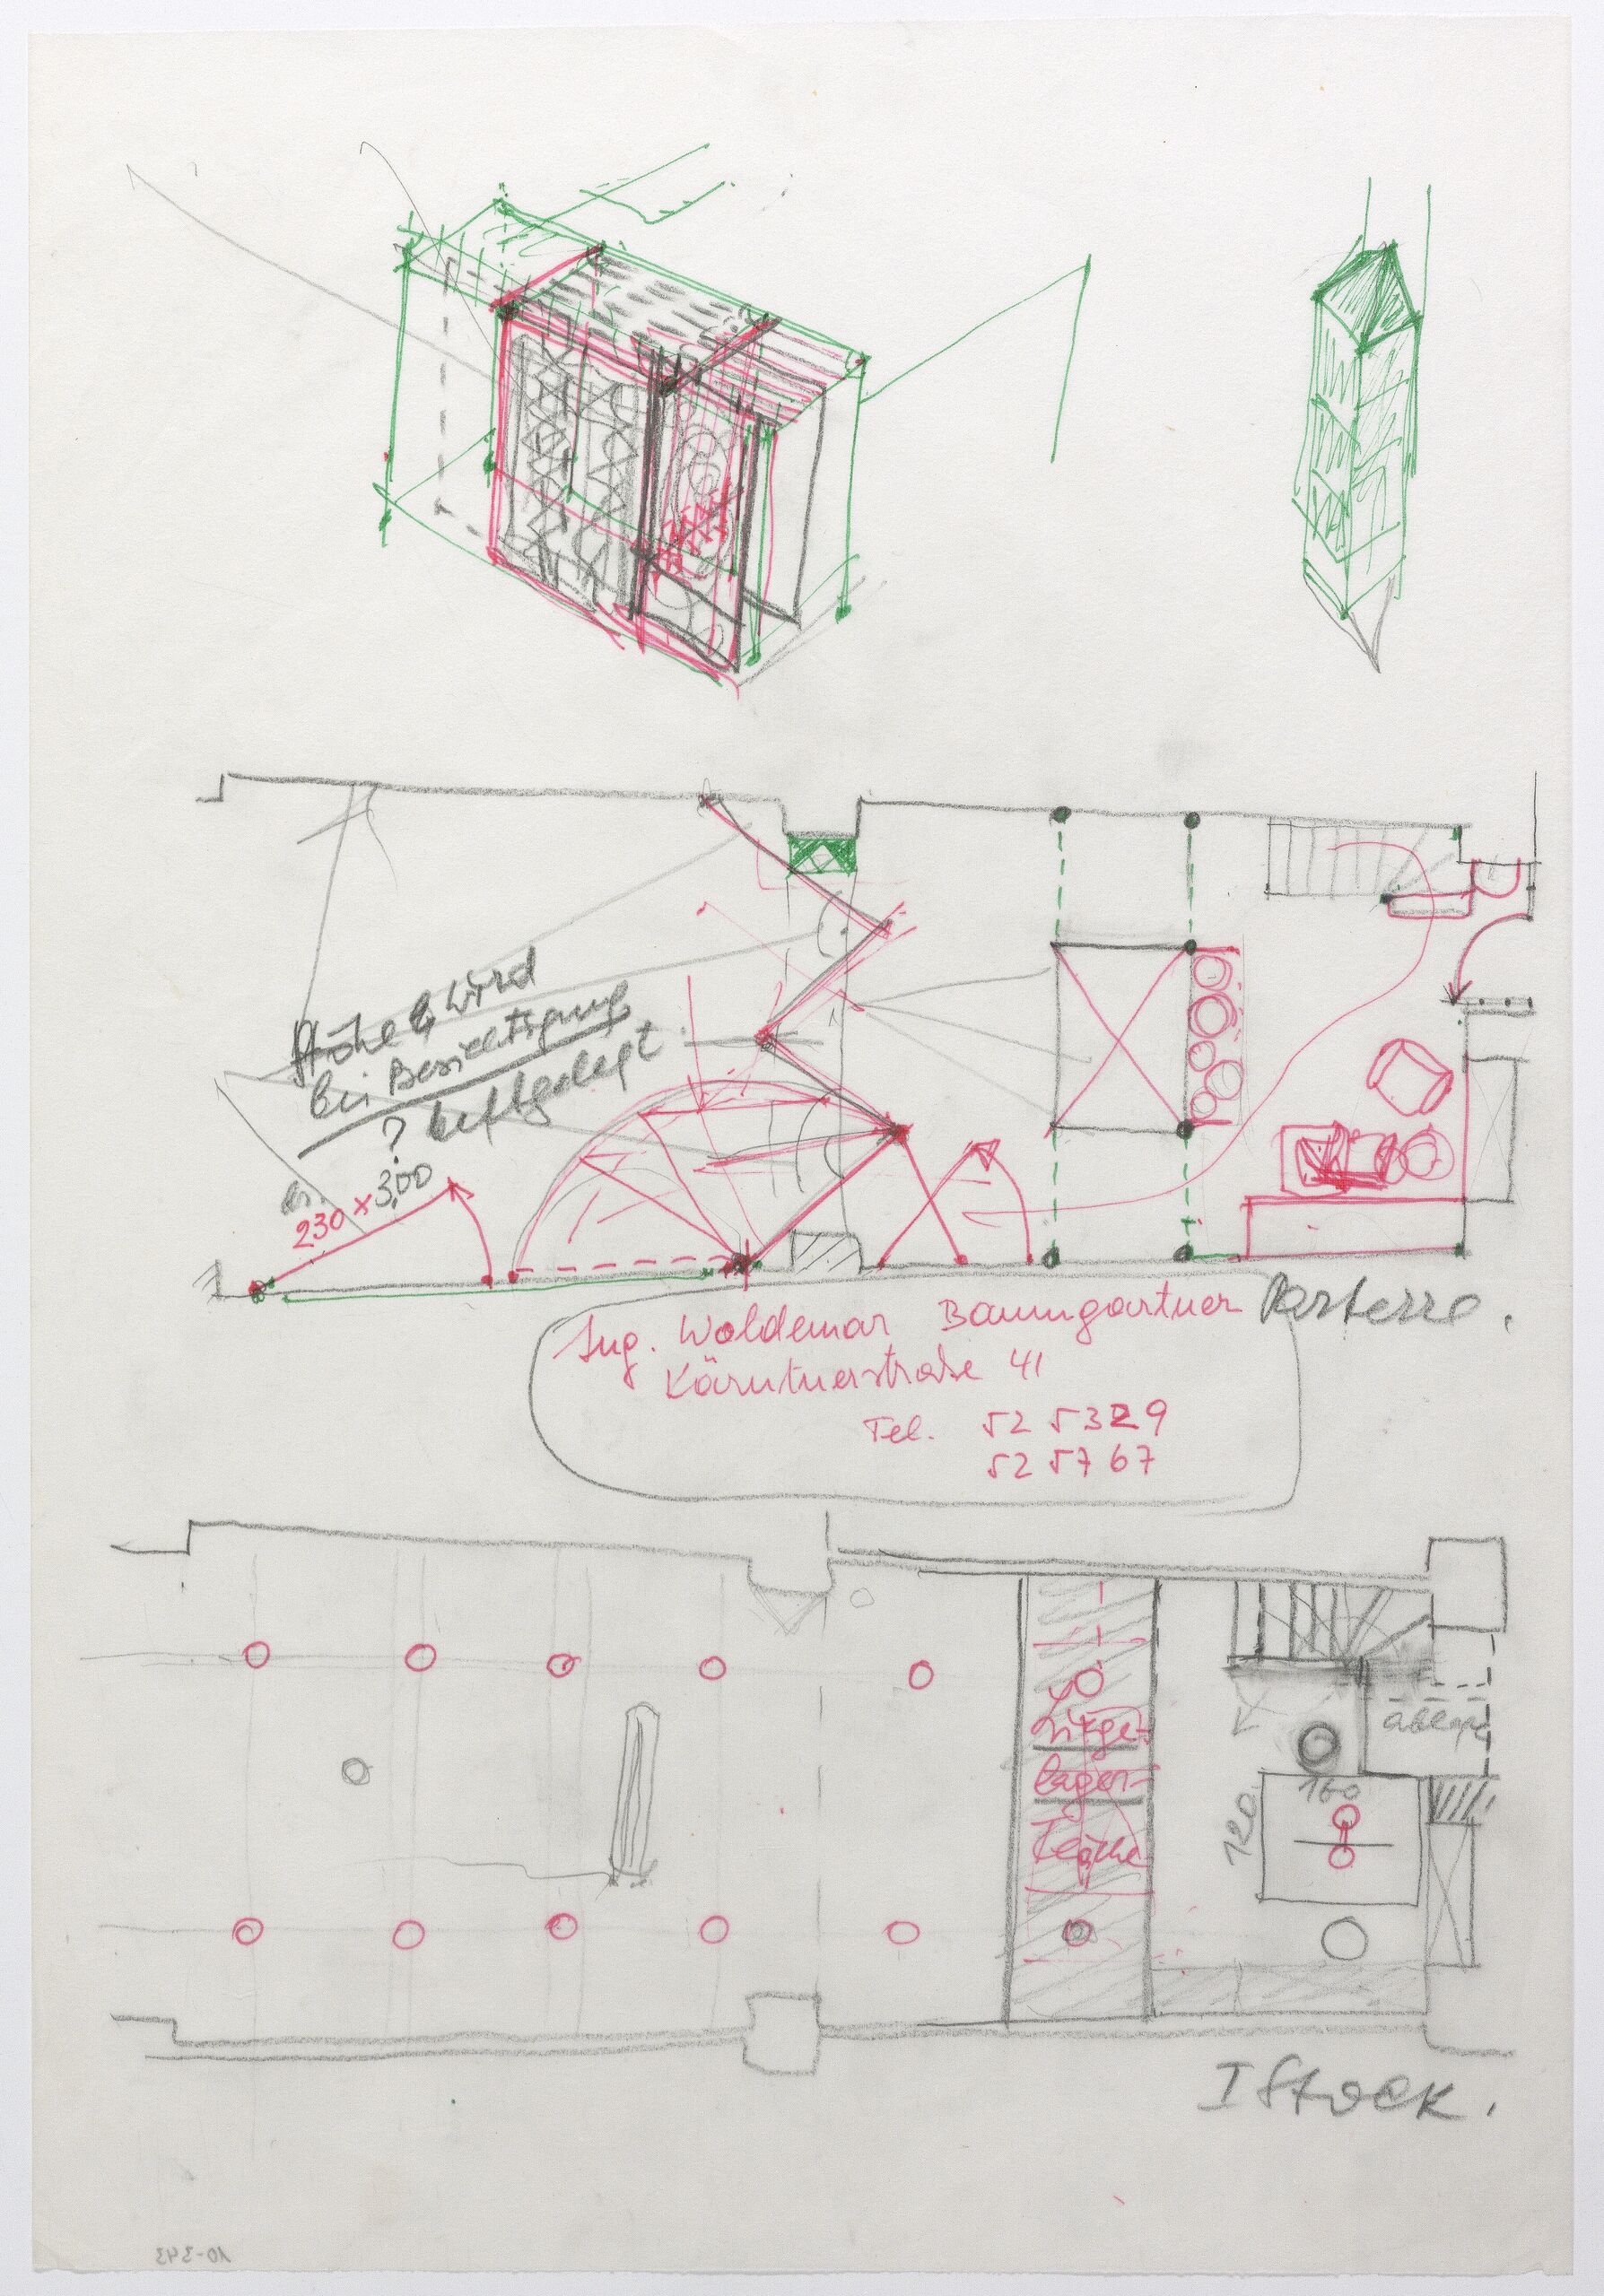 Höhe wird
bei Besichtigung
? festgelegt
230 x 3,00
Parterre.
Ing. Woldemar Baumgartner
Kärntnerstraße 41
Tel. 52 53 29
52 57 67
40
Liege-
lager-
120
160
I Stock.
10-343